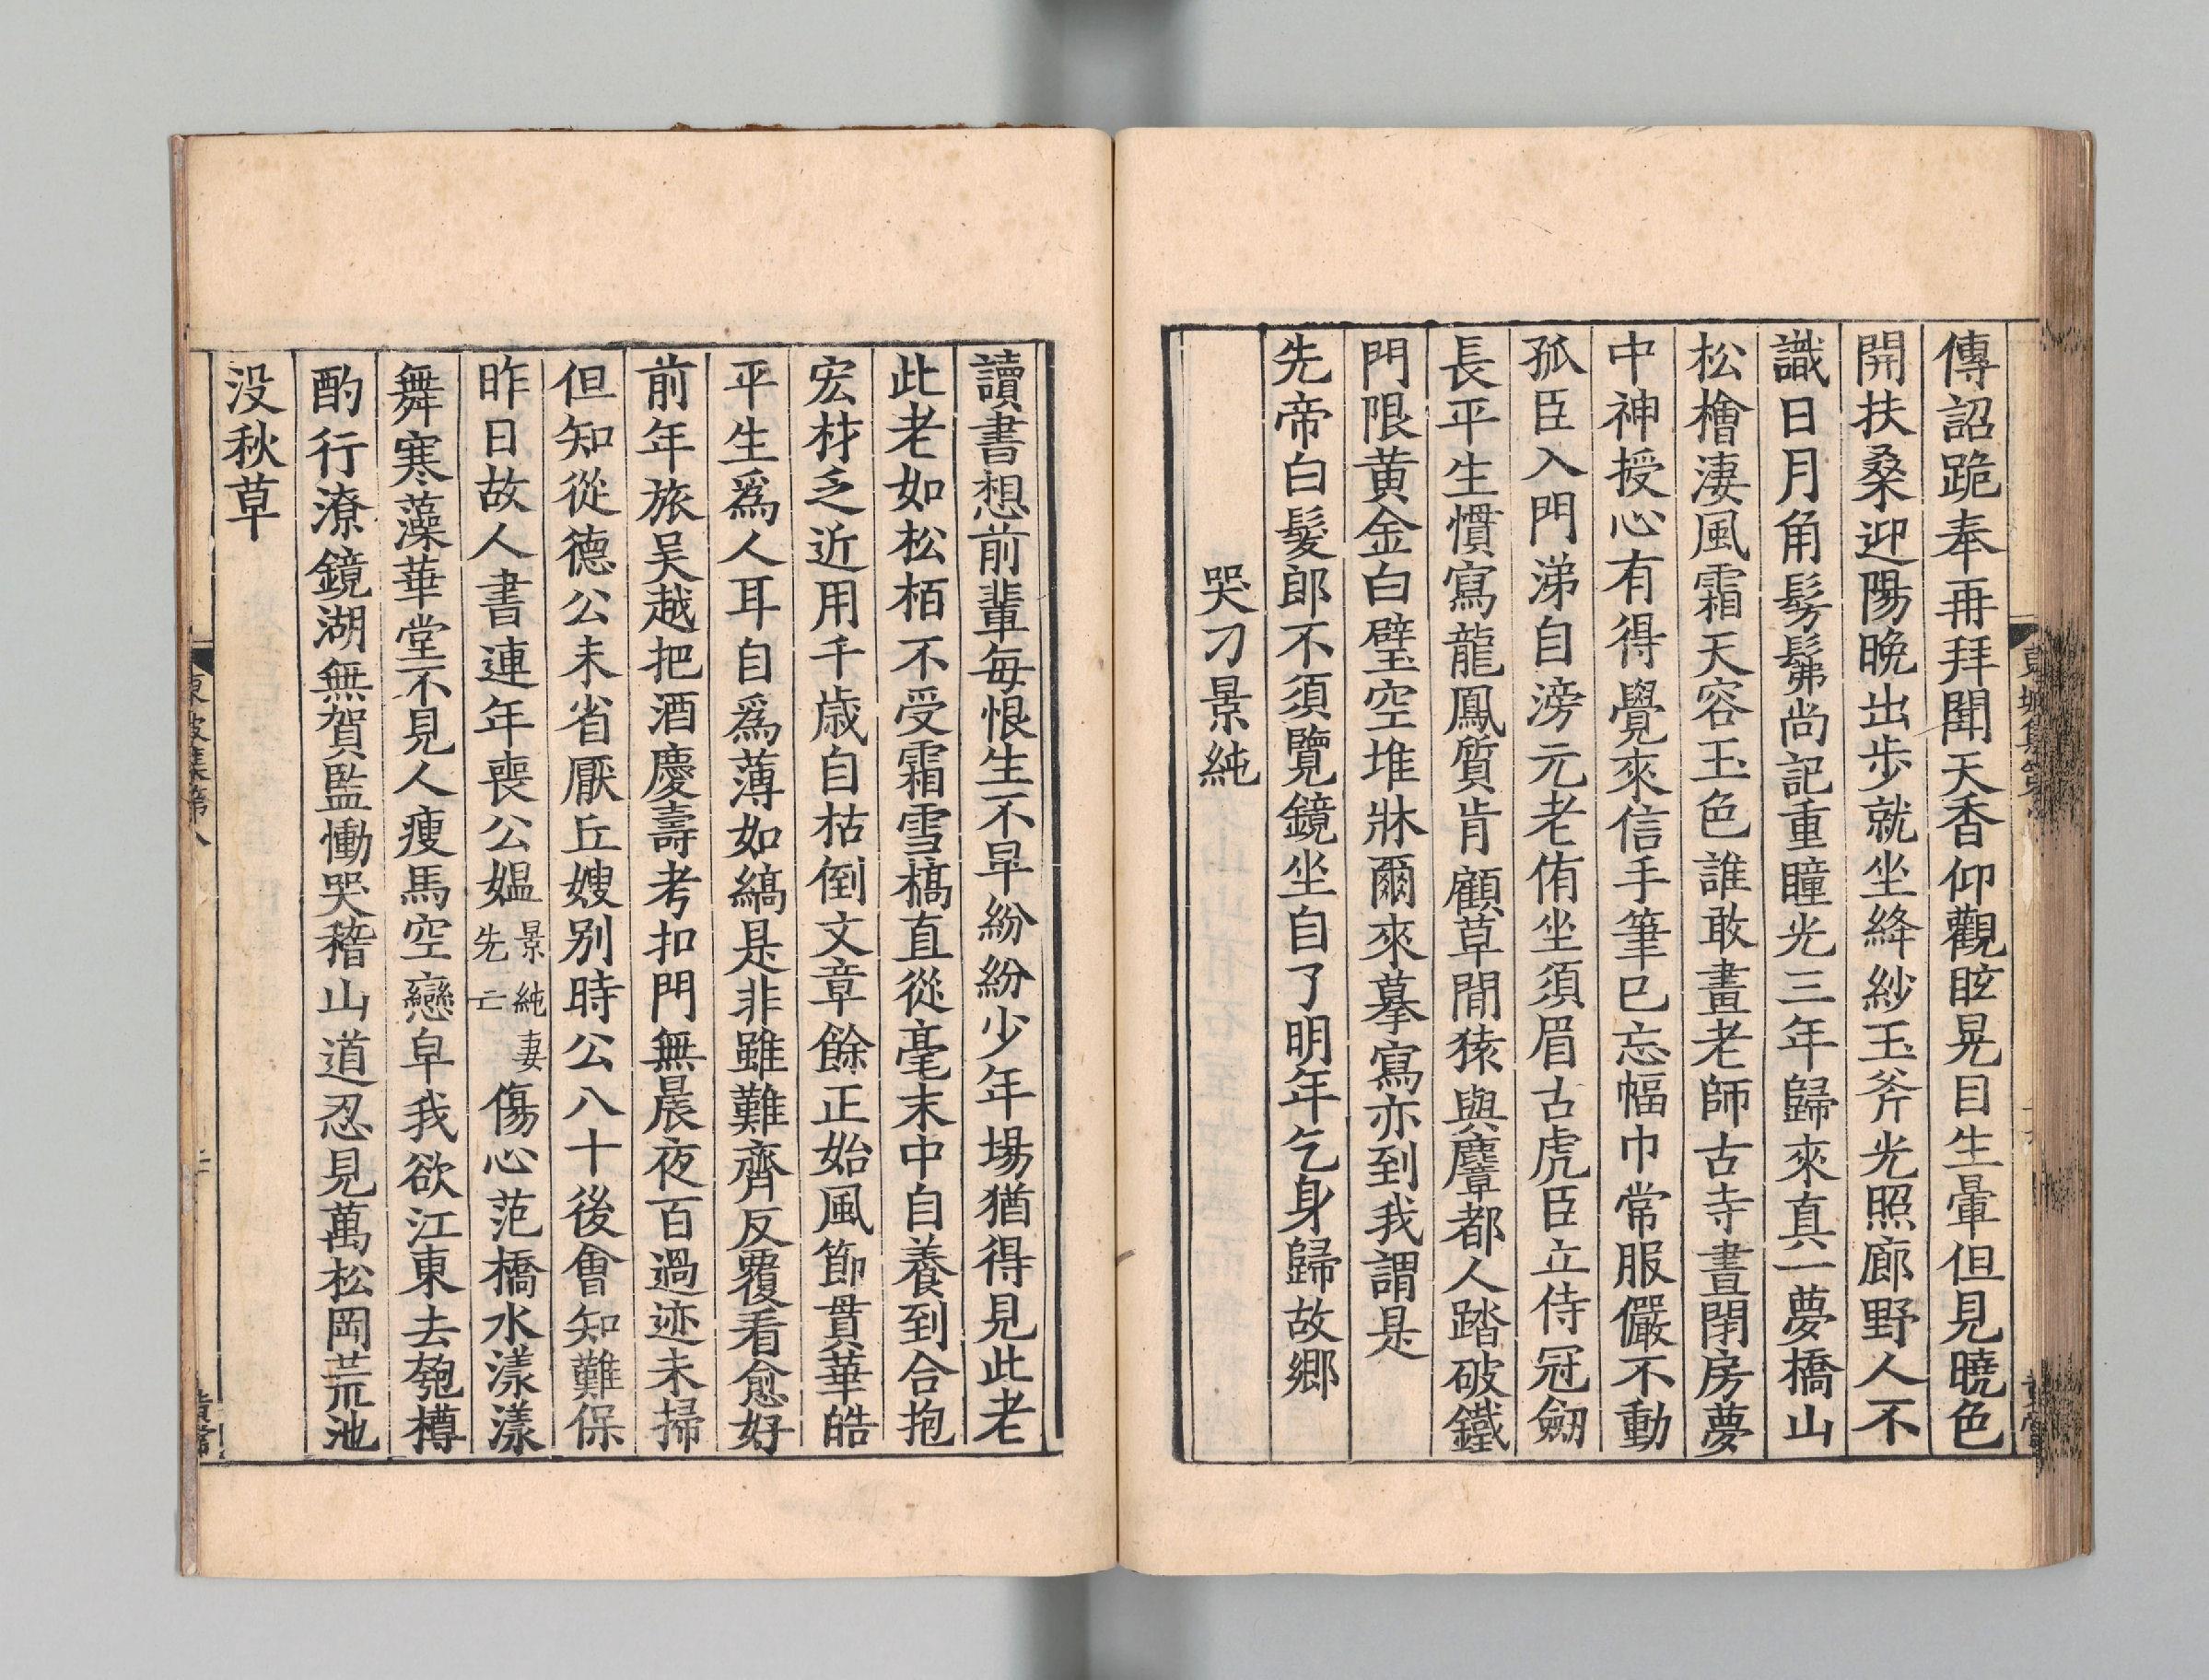 傳詔跪奉再拜聞天香仰觀眩晃目生暈但見曉色
開扶桑迎陽晚出步就坐絳紗玉斧光照廊野人不
識日月角髣髴尚記重瞳光三年歸來真一夢橋山
松檜淒風霜天容玉色誰敢畫老師古寺晝閉房夢
中神授心有得覺來信手筆已忘幅巾常服儼不動
孤臣入門涕自滂元老侑坐須眉古虎臣立侍冠劒
長平生慣寫龍鳳質肯顧草間猿與麞都人踏破鐵
門限黃金白璧空堆牀爾來摹寫亦到我謂是
先帝白髮郎不須覽鏡坐自了明年乞身歸故鄉
哭刁景純
讀書想前輩每恨生不早紛紛少年場猶得見此老
此老如松栢不受霜雪槁直從毫末中自養到合抱
宏材乏近用千歲自枯倒文章餘正始風節貫華皓
平生爲人耳自爲薄如縞是非雖難齊反覆看愈好
前年旅吳越把酒慶壽考扣門無晨夜百過迹未掃
但知從德公未省厭丘嫂別時公八十後會知難保
昨日故人書連年喪公媼景純妻先亡傷心范橋水漾漾
舞寒藻華堂不見人瘦馬空戀皁我欲江東去匏樽
酌行潦鏡湖無賀監慟哭稽山道忍見萬松岡荒池
沒秋草
東坡集第八